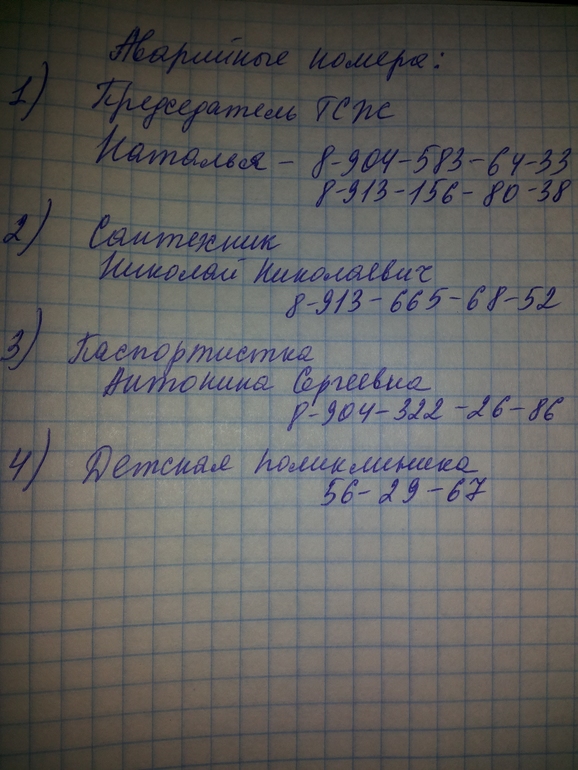 Аварийные номера:
1) Председатель ТСЖ
Наталья - 8-904-583-64-33
8-913-156-80-38
2) Сантехник
Николай Николаевич
8-913-665-68-52
3) Паспортистка
Антонина Сергеевна
8-904-322-26-86
4) Детская поликлиника
56-29-67